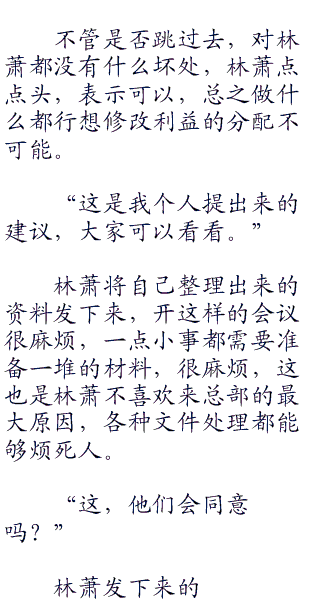 不管是否跳过去，对林
萧都没有什么坏处，林萧点
点头，表示可以，总之做什
么都行想修改利益的分配不
可能。
“这是我个人提出来的
建议，大家可以看看。”
林萧将自己整理出来的
资料发下来，开这样的会议
很麻烦，一点小事都需要准
备一堆的材料，很麻烦，这
也是林萧不喜欢来总部的最
大原因，各种文件处理都能
够烦死人。
“这，他们会同意
吗？”
林萧发下来的